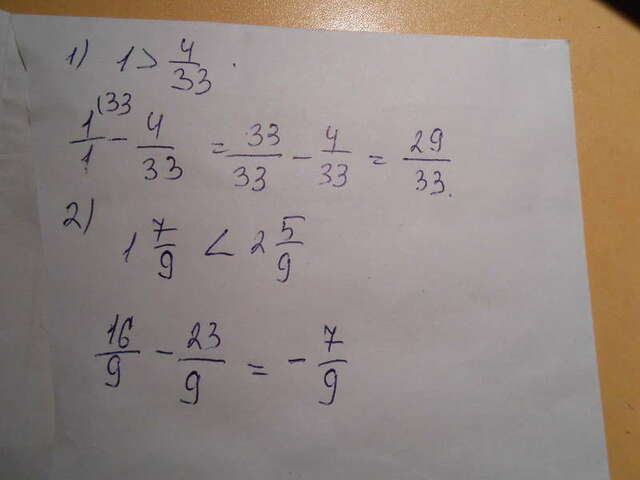 1) 1 > 4/33.
1/1 (33 - 4/33 = 33/33 - 4/33 = 29/33.
2)
1 7/9 < 2 5/9
16/9 - 23/9 = - 7/9